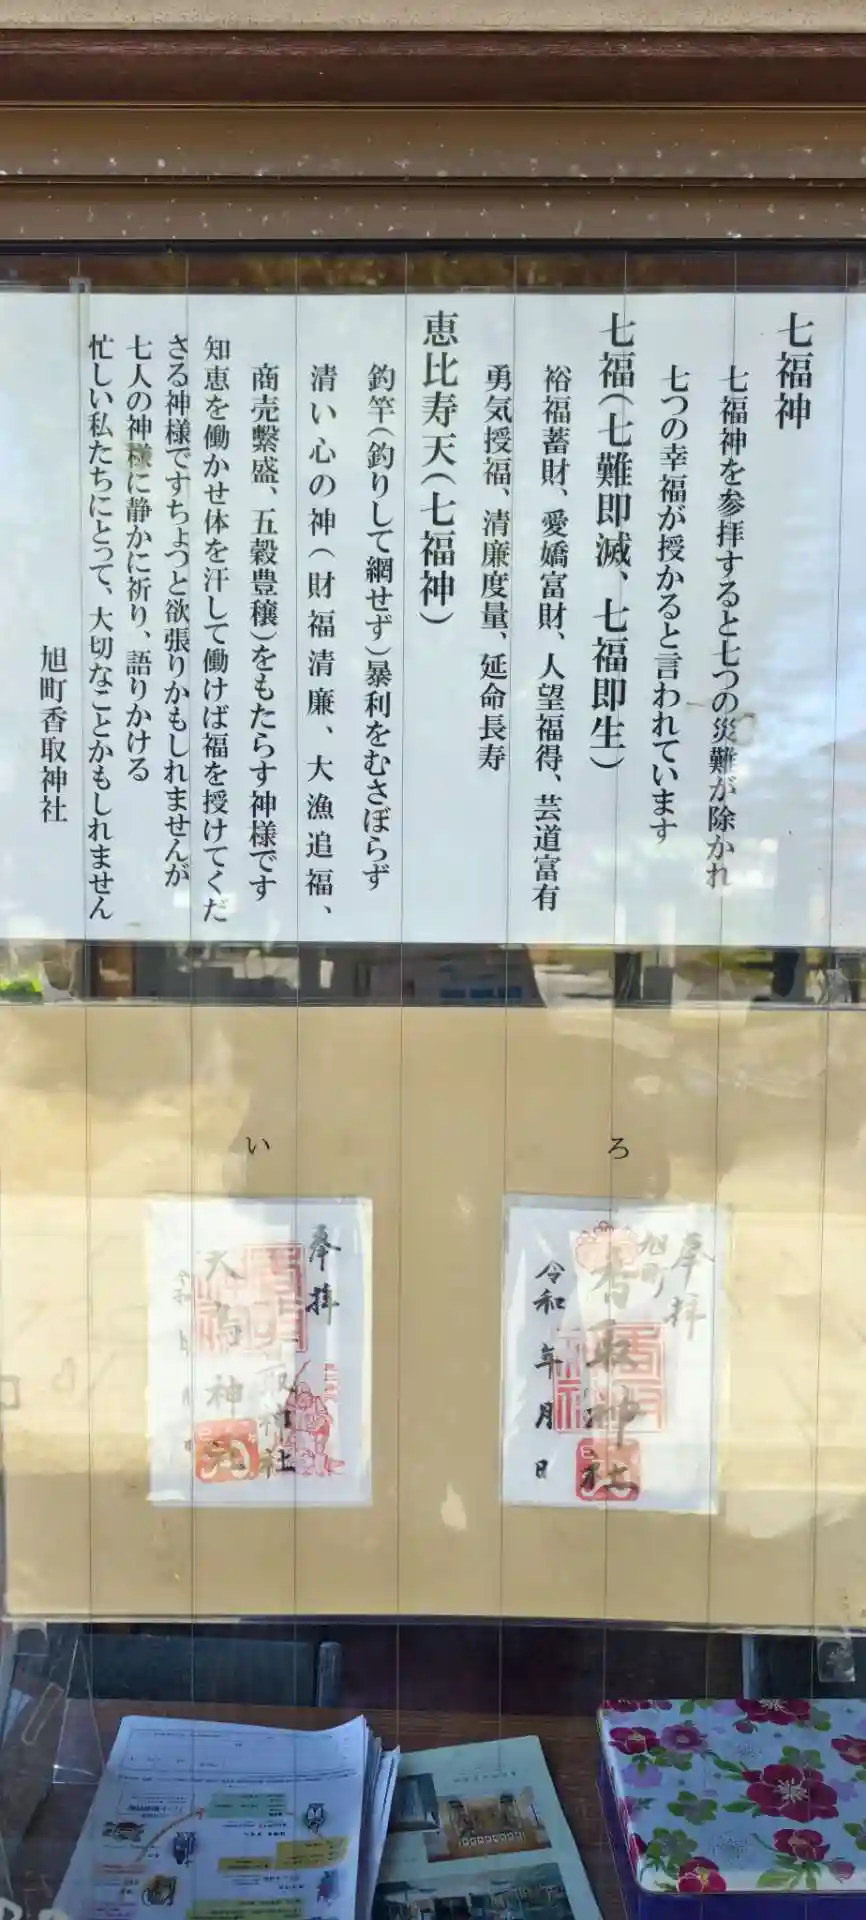 七福神
七福神を参拝すると七つの災難が除かれ
七つの幸福が授かると言われています
七福(七難即滅、七福即生)
裕福蓄財、愛嬌富財、人望福得、芸道富有
勇気授福、清廉度量、延命長寿
恵比寿天(七福神)
釣竿(釣りして網せず)暴利をむさぼらず
清い心の神(財福清廉、大漁追福、
商売繋盛、五穀豊穣)をもたらす神様です
知恵を働かせ体を汗して働けば福を授けてくだ
さる神様ですちょつと欲張りかもしれませんが
七人の神様に静かに祈り、語りかける
忙しい私たちにとって、大切なことかもしれません
旭町香取神社
ろ
奉拝
旭町
香取神社
令和 年 月 日
い
奉拝
取神社
大鳥神社
令和